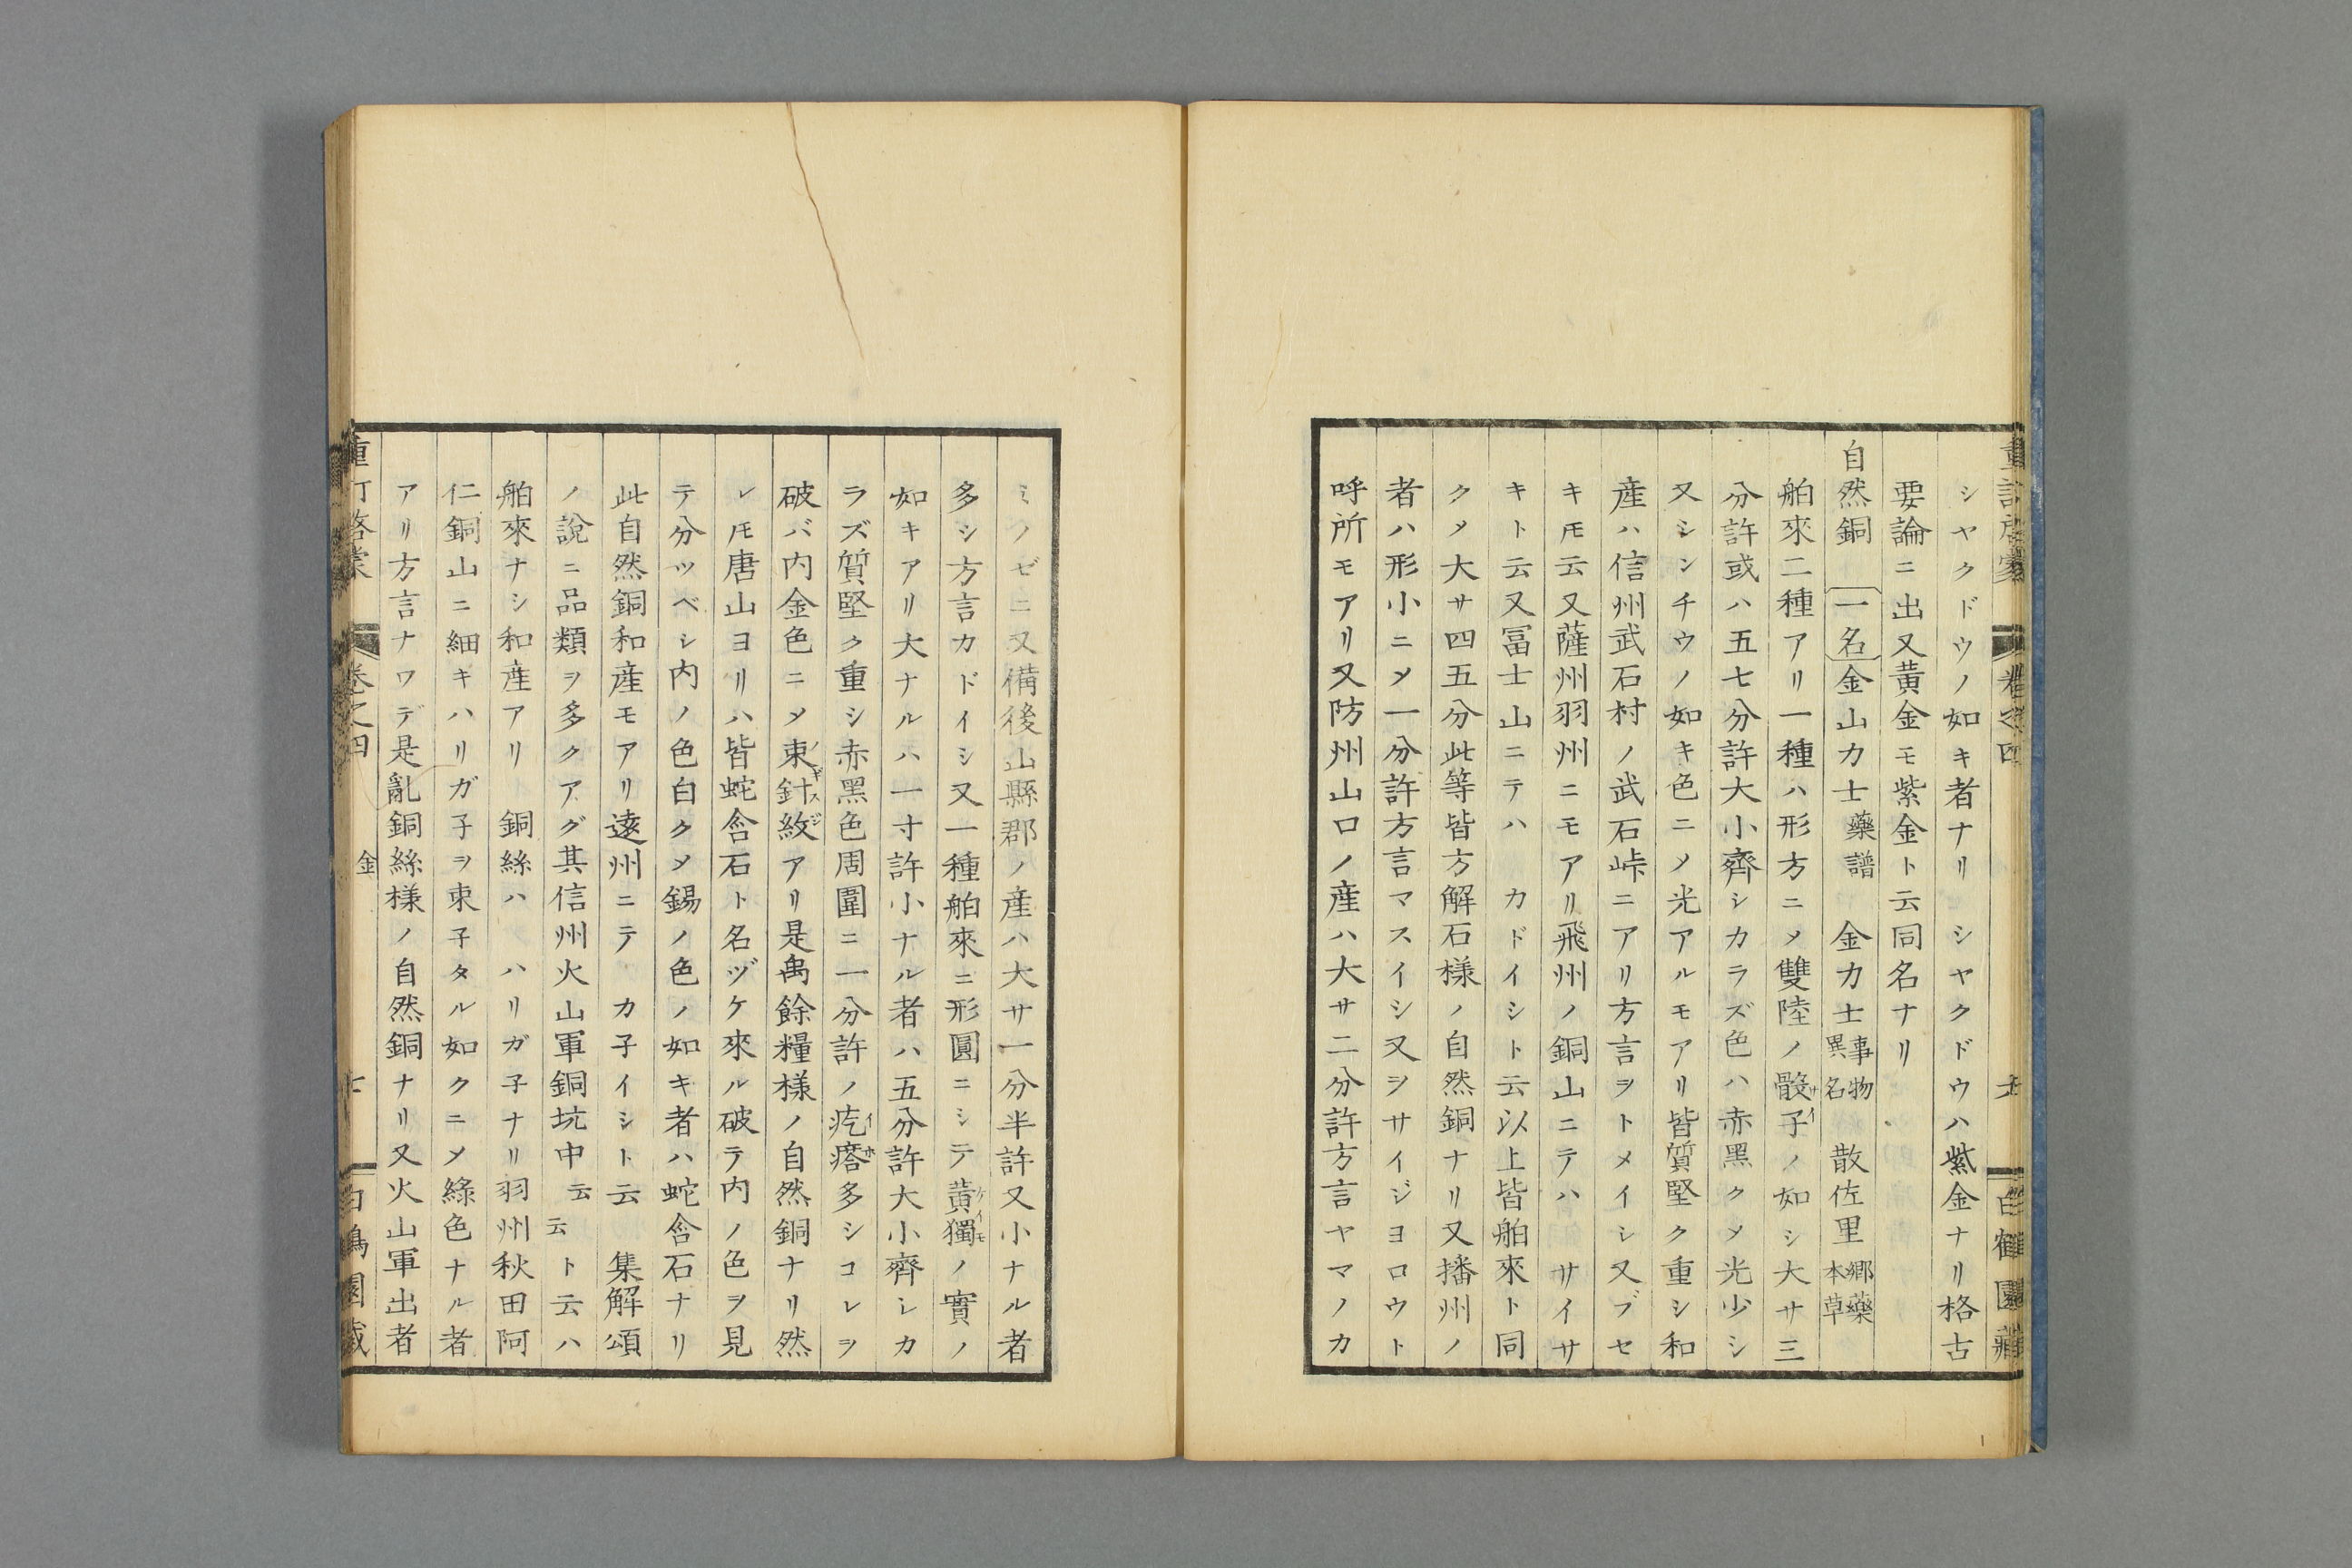 シヤクドウノ如キ者ナリ シヤクドウハ紫金ナリ格古
要論ニ出又黃金モ紫金ト云同名ナリ
自然銅 一名 金山力士藥譜 金力士事物異名 散佐里郷藥本草
舶來二種アリ一種ハ形方ニメ雙陸ノ骰子サイノ如シ大サ三
分許或ハ五七分許大小齊シカラズ色ハ赤黑クメ光少シ
又シンチウノ如キ色ニメ光アルモアリ皆質堅ク重シ和
産ハ信州武石村ノ武石峠ニアリ方言ヲトメイシ又ブセ
キ𪜈云又薩州羽州ニモアリ飛州ノ銅山ニテハ サイサ
キト云又冨士山ニテハ カドイシト云以上皆舶來ト同
クメ大サ四五分此等皆方解石樣ノ自然銅ナリ又播州ノ
者ハ形小ニメ一分許方言マスイシ又ヲサイジヨロウト
呼所モアリ又防州山口ノ産ハ大サ二分許方言ヤマノカ
ミノゼニ又備後山縣郡ノ産ハ大サ一分半許又小ナル者
多シ方言カドイシ又一種舶來ニ形圓ニシテ黃獨ケイモノ實ノ
如キアリ大ナルハ一寸許小ナル者ハ五分許大小齊シカ
ラズ質堅ク重シ赤黑色周圍ニ一分許ノ疙瘩イボ多シコレヲ
破バ内金色ニメ束針紋ノギスジアリ是禹餘糧樣ノ自然銅ナリ然
レ𪜈唐山ヨリハ皆蛇含石ト名ヅケ來ル破テ内ノ色ヲ見
テ分ツベシ内ノ色白クメ錫ノ色ノ如キ者ハ蛇含石ナリ
此自然銅和産モアリ遠州ニテ カ子イシト云 集解頌
ノ說ニ品類ヲ多クアグ其信州火山軍銅坑中云云ト云ハ
舶來ナシ和産アリ 銅絲ハ ハリガ子ナリ羽州秋田阿
仁銅山ニ細キハリガ子ヲ束子タル如クニメ綠色ナル者
アリ方言ナワデ是亂銅絲樣ノ自然銅ナリ又火山軍出者
卷之四 金